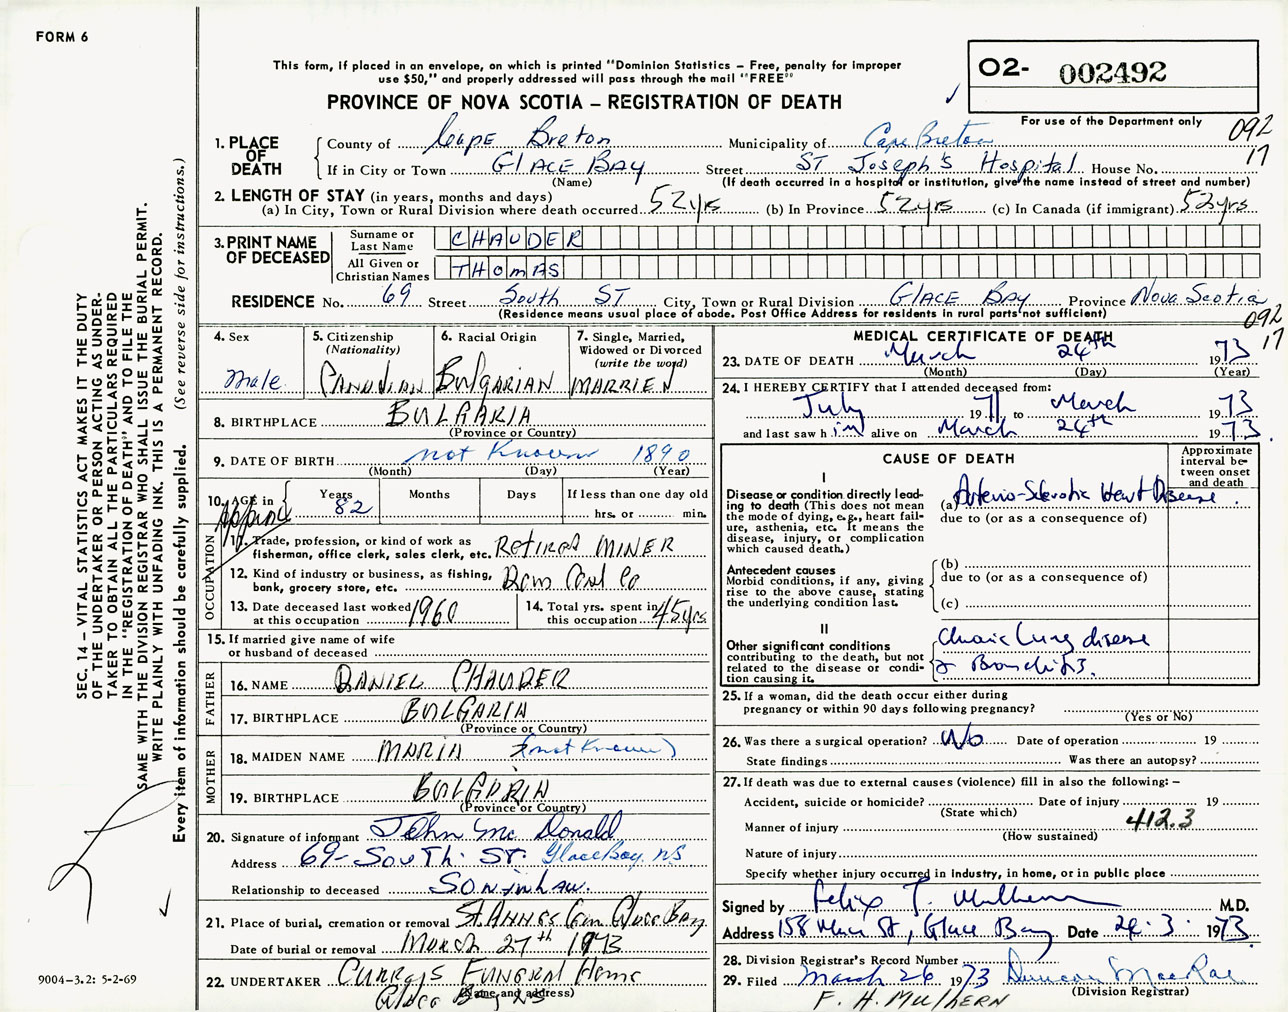 FORM 6
This form, if placed in an envelope, on which is printed "Dominion Statistics – Free, penalty for improper
use $50," and properly addressed will pass through the mail "FREE"
PROVINCE OF NOVA SCOTIA – REGISTRATION OF DEATH
O2- 002492
For use of the Department only
092
17
1. PLACE OF DEATH
County of Cape Breton Municipality of Cape Breton
If in City or Town GLACE BAY Street ST Joseph's Hospital House No.
(Name) (If death occurred in a hospital or institution, give the name instead of street and number)
2. LENGTH OF STAY (in years, months and days)
(a) In City, Town or Rural Division where death occurred 52yrs (b) In Province 52yrs (c) In Canada (if immigrant) 52yrs
3. PRINT NAME OF DECEASED
Surname or Last Name CHAUDER
All Given or Christian Names THOMAS
RESIDENCE No. 69 Street South ST City, Town or Rural Division GLACE BAY Province Nova Scotia
(Residence means usual place of abode. Post Office Address for residents in rural parts not sufficient)
092
17
4. Sex
male
5. Citizenship
(Nationality)
CANADIAN
6. Racial Origin
BULGARIAN
7. Single, Married,
Widowed or Divorced
(write the word)
MARRIED
8. BIRTHPLACE BULGARIA
(Province or Country)
9. DATE OF BIRTH not Known 1890
(Month) (Day) (Year)
10. AGE in Years 82 Months Days If less than one day old
hrs. or min.
OCCUPATION
11. Trade, profession, or kind of work as
fisherman, office clerk, sales clerk, etc. RETIRED MINER
12. Kind of industry or business, as fishing,
bank, grocery store, etc. Dom Coal Co
13. Date deceased last worked
at this occupation 1960
14. Total yrs. spent in
this occupation 45yrs
15. If married give name of wife
or husband of deceased
FATHER
16. NAME DANIEL CHAUDER
17. BIRTHPLACE BULGARIA
(Province or Country)
MOTHER
18. MAIDEN NAME MARIA (not Known)
19. BIRTHPLACE BULGARIA
(Province or Country)
20. Signature of informant John Mc Donald
Address 69- South. St. Glace Bay. NS
Relationship to deceased Son in Law.
21. Place of burial, cremation or removal St. Annes Cem Glace Bay
Date of burial or removal March 27th 1973
22. UNDERTAKER Currys Funeral Home
Glace Bay NS
(Name and address)
MEDICAL CERTIFICATE OF DEATH
23. DATE OF DEATH March 24th 1973
(Month) (Day) (Year)
24. I HEREBY CERTIFY that I attended deceased from:
July 1971 to March 1973
and last saw him alive on March 24th 1973.
CAUSE OF DEATH
Approximate
interval be-
tween onset
and death
I
Disease or condition directly lead-
ing to death (This does not mean
the mode of dying, e.g., heart fail-
ure, asthenia, etc. It means the
disease, injury, or complication
which caused death.)
(a) Arterio-Sclerotic Heart Disease.
due to (or as a consequence of)
Antecedent causes
Morbid conditions, if any, giving
rise to the above cause, stating
the underlying condition last.
(b)
due to (or as a consequence of)
(c)
II
Other significant conditions
contributing to the death, but not
related to the disease or condi-
tion causing it.
Chronic Lung disease
& Bronchitis.
25. If a woman, did the death occur either during
pregnancy or within 90 days following pregnancy?
(Yes or No)
26. Was there a surgical operation? No Date of operation 19
State findings Was there an autopsy?
27. If death was due to external causes (violence) fill in also the following: –
Accident, suicide or homicide? Date of injury 19
(State which)
Manner of injury 412.3
(How sustained)
Nature of injury
Specify whether injury occurred in industry, in home, or in public place
Signed by Felix T. Mulhern M.D.
Address 158 Main St, Glace Bay Date 24.3. 1973.
28. Division Registrar's Record Number
29. Filed March 26 1973 Duncan MacRae
(Division Registrar)
F. H. MULHERN
SEC. 14 – VITAL STATISTICS ACT MAKES IT THE DUTY
OF THE UNDERTAKER OR PERSON ACTING AS UNDER-
TAKER TO OBTAIN ALL THE PARTICULARS REQUIRED
IN THE "REGISTRATION OF DEATH" AND TO FILE THE
SAME WITH THE DIVISION REGISTRAR WHO SHALL ISSUE THE BURIAL PERMIT.
WRITE PLAINLY WITH UNFADING INK. THIS IS A PERMANENT RECORD.
Every item of information should be carefully supplied. (See reverse side for instructions.)
9004-3.2: 5-2-69